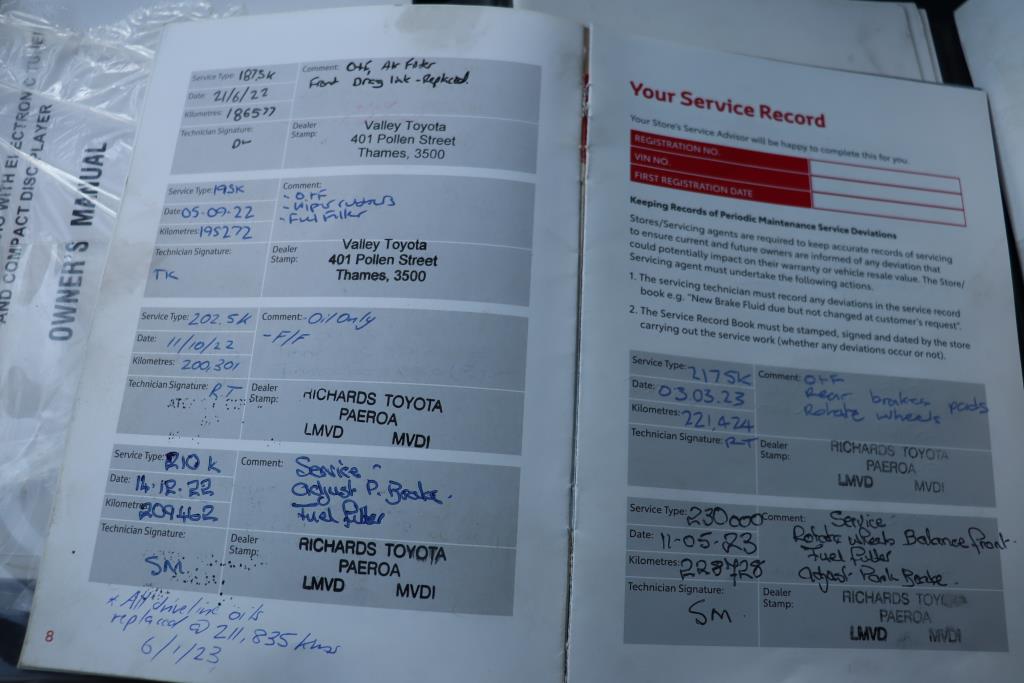 AND COMPACT DISC PLAYER
OWNER'S MANUAL
Service Type: 187.5K
Comment: O+F, Air Filter
Front Drag link - Replaced.
Date: 21/6/22
Kilometres: 186577
Technician Signature:
Dealer Stamp:
Valley Toyota
401 Pollen Street
Thames, 3500
Service Type: 195K
Comment:
- O.F.F
- wiper rubbers
- Fuel Filter
Date: 05-09-22
Kilometres: 195272
Technician Signature:
TK
Dealer Stamp:
Valley Toyota
401 Pollen Street
Thames, 3500
Service Type: 202.5K
Comment: - Oil Only
- F/F
Date: 11/10/22
Kilometres: 200,301
Technician Signature: RT
Dealer Stamp:
RICHARDS TOYOTA
PAEROA
LMVD MVDI
Service Type: 210 K
Comment: Service -
adjust P. Brake.
Fuel filter
Date: 14.12.22
Kilometres 209462
Technician Signature:
SM
Dealer Stamp:
RICHARDS TOYOTA
PAEROA
LMVD MVDI
* All driveline oils
replaced @ 211,835 kms
6/1/23
8
Your Service Record
Your Store's Service Advisor will be happy to complete this for you.
REGISTRATION NO.
VIN NO.
FIRST REGISTRATION DATE
Keeping Records of Periodic Maintenance Service Deviations
Stores/Servicing agents are required to keep accurate records of servicing
to ensure current and future owners are informed of any deviation that
could potentially impact on their warranty or vehicle resale value. The Store/
Servicing agent must undertake the following actions.
1. The servicing technician must record any deviations in the service record
book e.g. "New Brake Fluid due but not changed at customer's request".
2. The Service Record Book must be stamped, signed and dated by the store
carrying out the service work (whether any deviations occur or not).
Service Type: 217.5K
Comment: O+F
Rear brakes pads
Rotate wheels
Date: 03.03.23
Kilometres: 221,424
Technician Signature: RT
Dealer Stamp:
RICHARDS TOYOTA
PAEROA
LMVD MVDI
Service Type: 230000
Comment: Service
Rotate wheels Balance front.
Fuel filter
Adjust Park Brake.
Date: 11-05-23
Kilometres: 228728
Technician Signature:
SM.
Dealer Stamp:
RICHARDS TOYOTA
PAEROA
LMVD MVDI